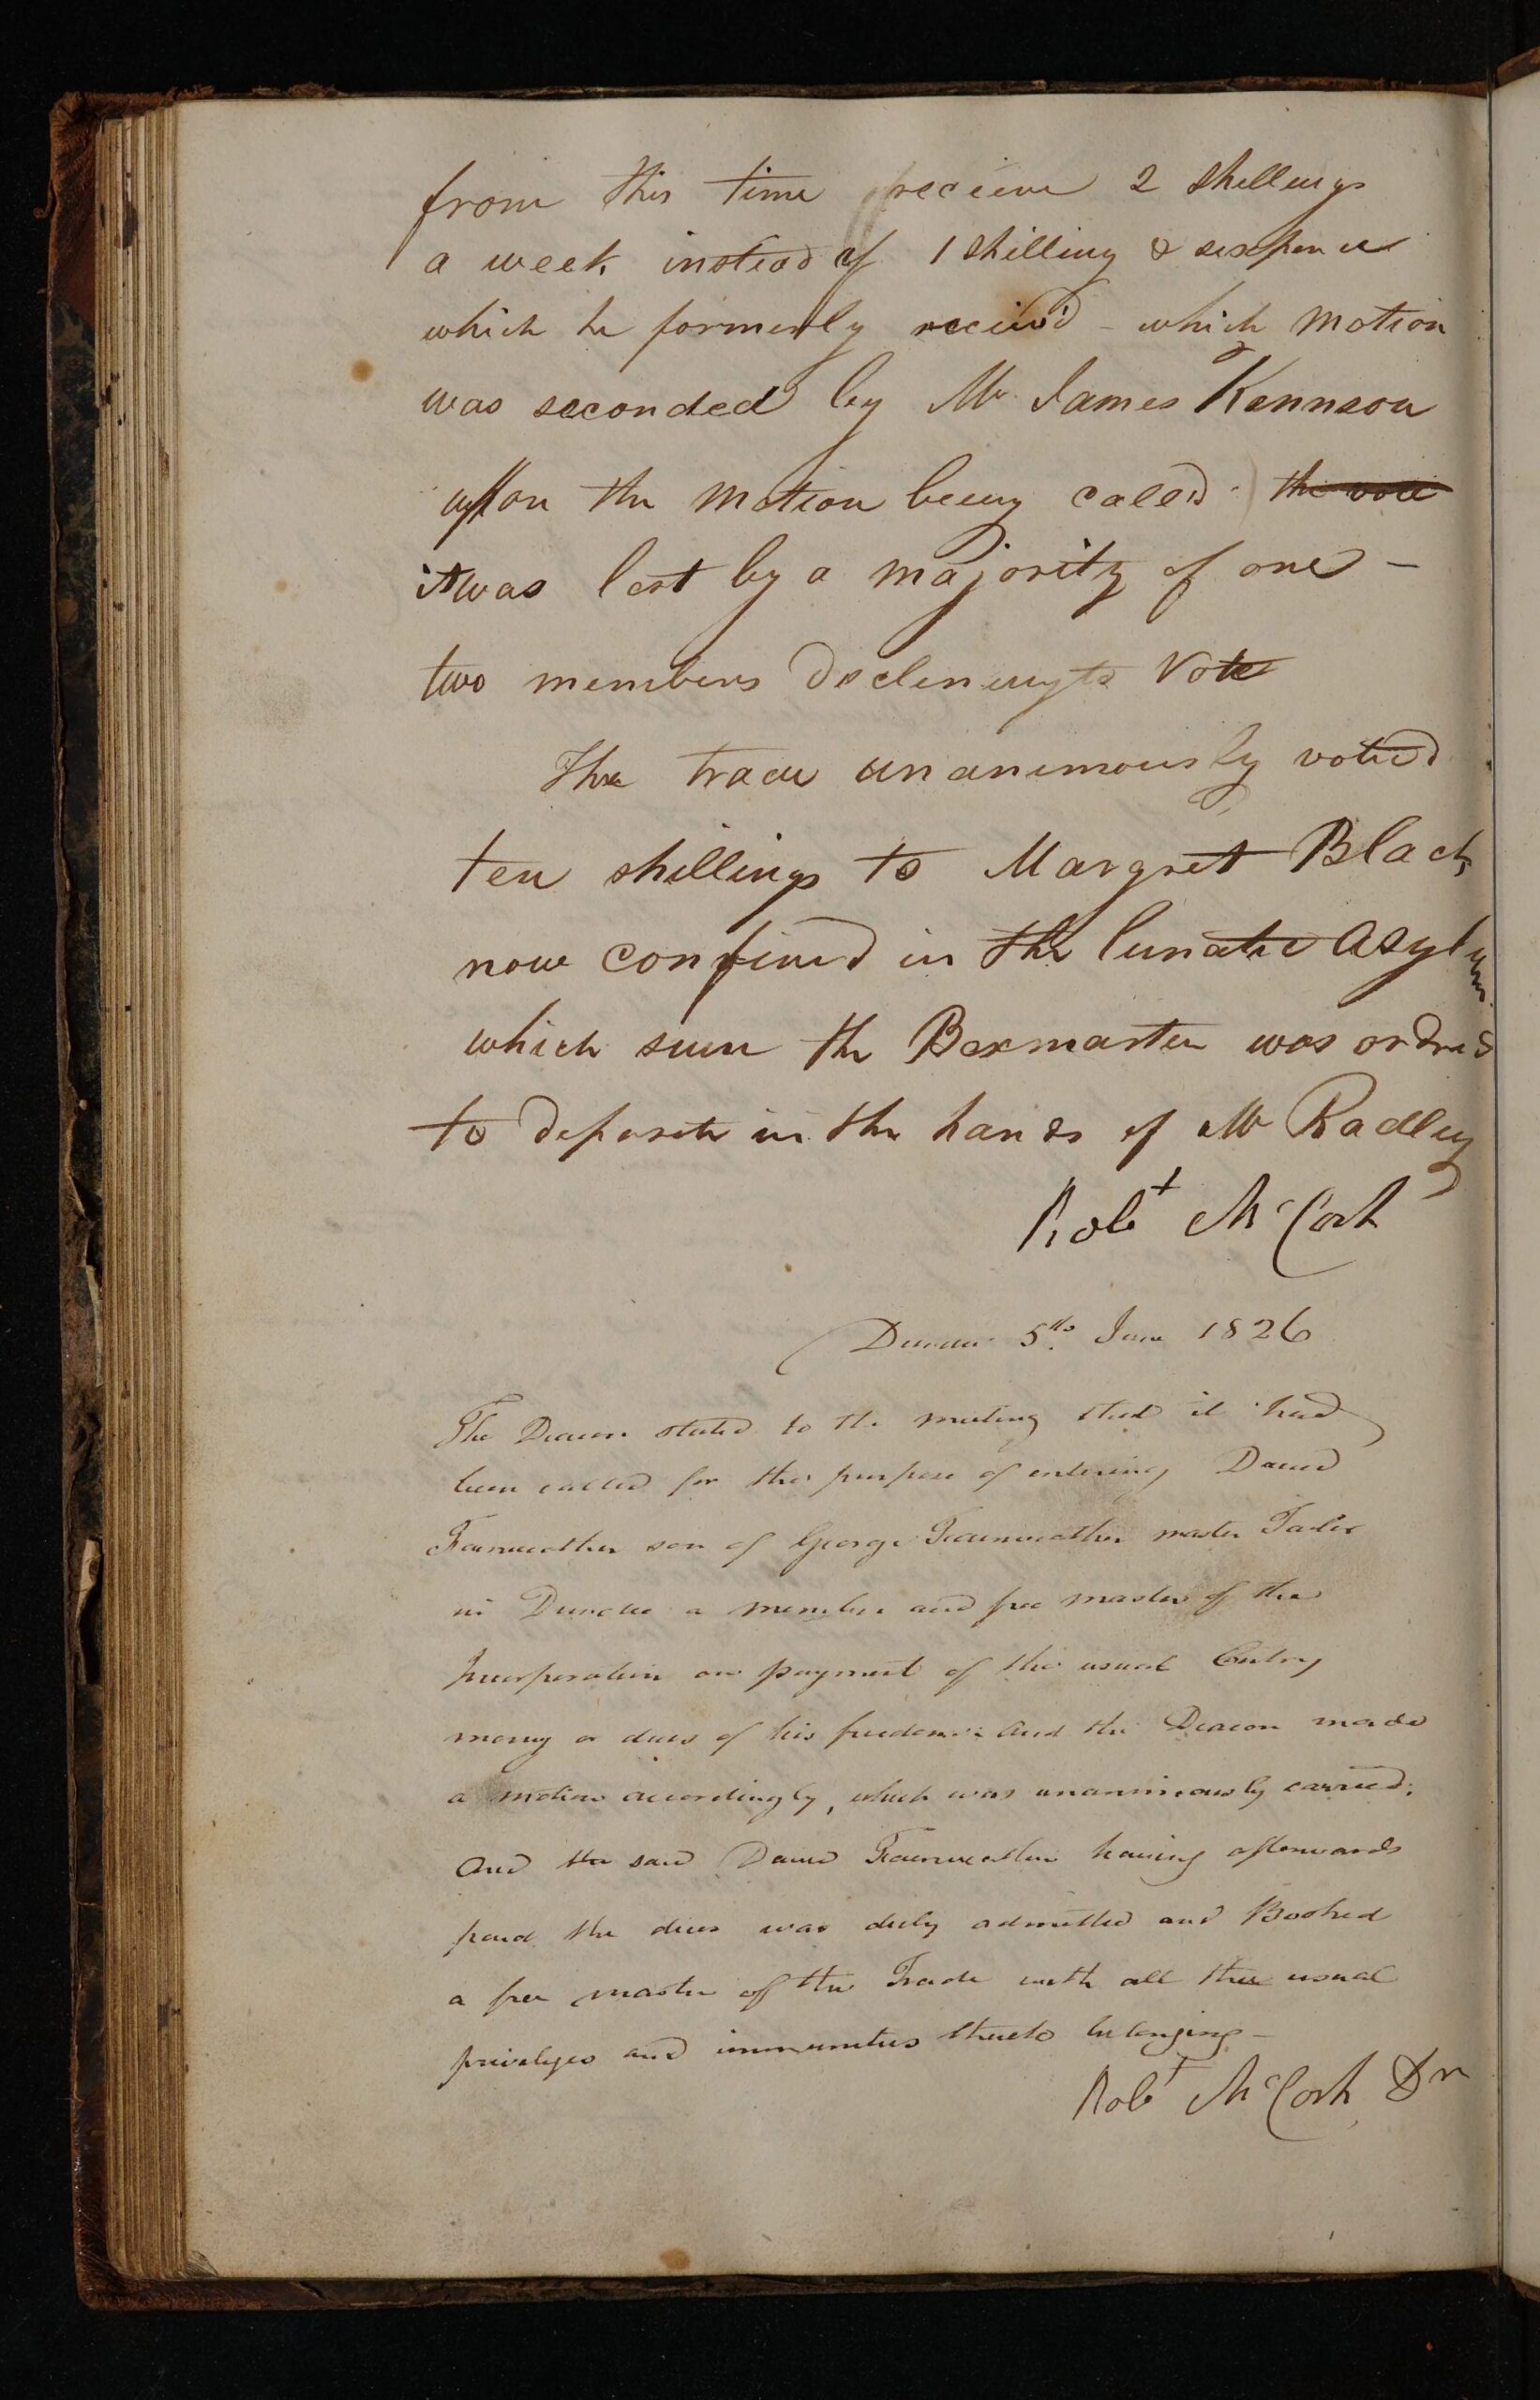 from this time receive 2 shillings
a week instead of 1 shilling & sixpence
which he formerly received - which motion
was seconded by Mr James Kennson
upon the motion being called the vote
it was lost by a majority of one -
two members declening to Vote
The trade unanimously voted
ten shillings to Margret Black
now confined in the lunatic asylum
which sum the Boxmaster was ordred
to deposite in the hands of Mr Radley
Robt McCosh
Dundee 5th June 1826
The Deacon stated to the meeting that it had
been called for the purpose of entering David
Fairweather son of George Fairweather master Tailor
in Dundee a member and free master of the
Incorporation on payment of the usual Entry
money or dues of his freedom and the Deacon made
a motion accordingly, which was unanimously carried;
And the said David Fairweather having afterwards
paid the dues was duly admitted and Booked
a free master of the Trade with all the usual
priveleges and immunities thereto belonging -
Robt McCosh Dn